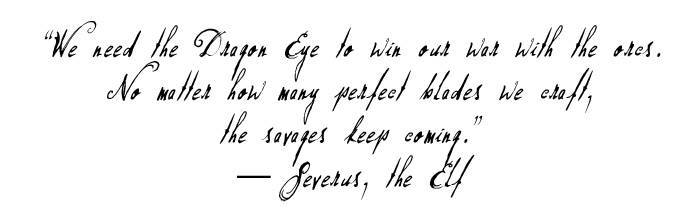 “We need the Dragon Eye to win our war with the orcs.
No matter how many perfect blades we craft,
the savages keep coming.”
— Severus, the Elf